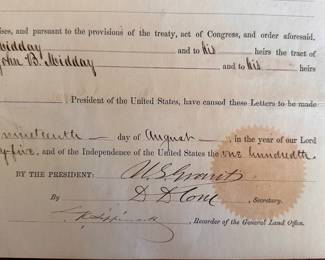 ises, and pursuant to the provisions of the treaty, act of Congress, and order aforesaid.
Midday and to his heirs the tract of
John B. Midday and to his heirs
President of the United States, have caused these Letters to be made
nineteenth day of August, in the year of our Lord
y-five, and of the Independence of the United States the one hundredth.
BY THE PRESIDENT: U.S. Grant
By D D Cone, Secretary.
Recorder of the General Land Office.